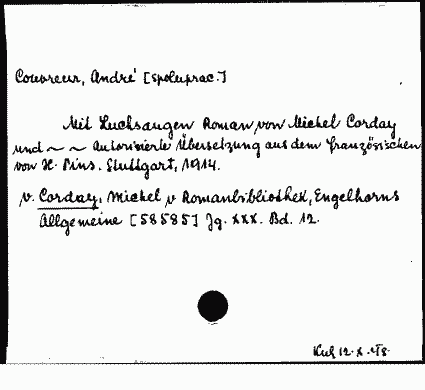 Couvreur, André [spoluprac.]
Mit Luchsaugen Roman von Michel Corday
und ~ ~ Autorisierte Übersetzung aus dem französischen
von H. Pins. Stuttgart, 1914.
v. Corday, Michel v Romanbibliothek, Engelhorns
Allgemeine [58585] Jg. XXX. Bd. 12.
12. X.